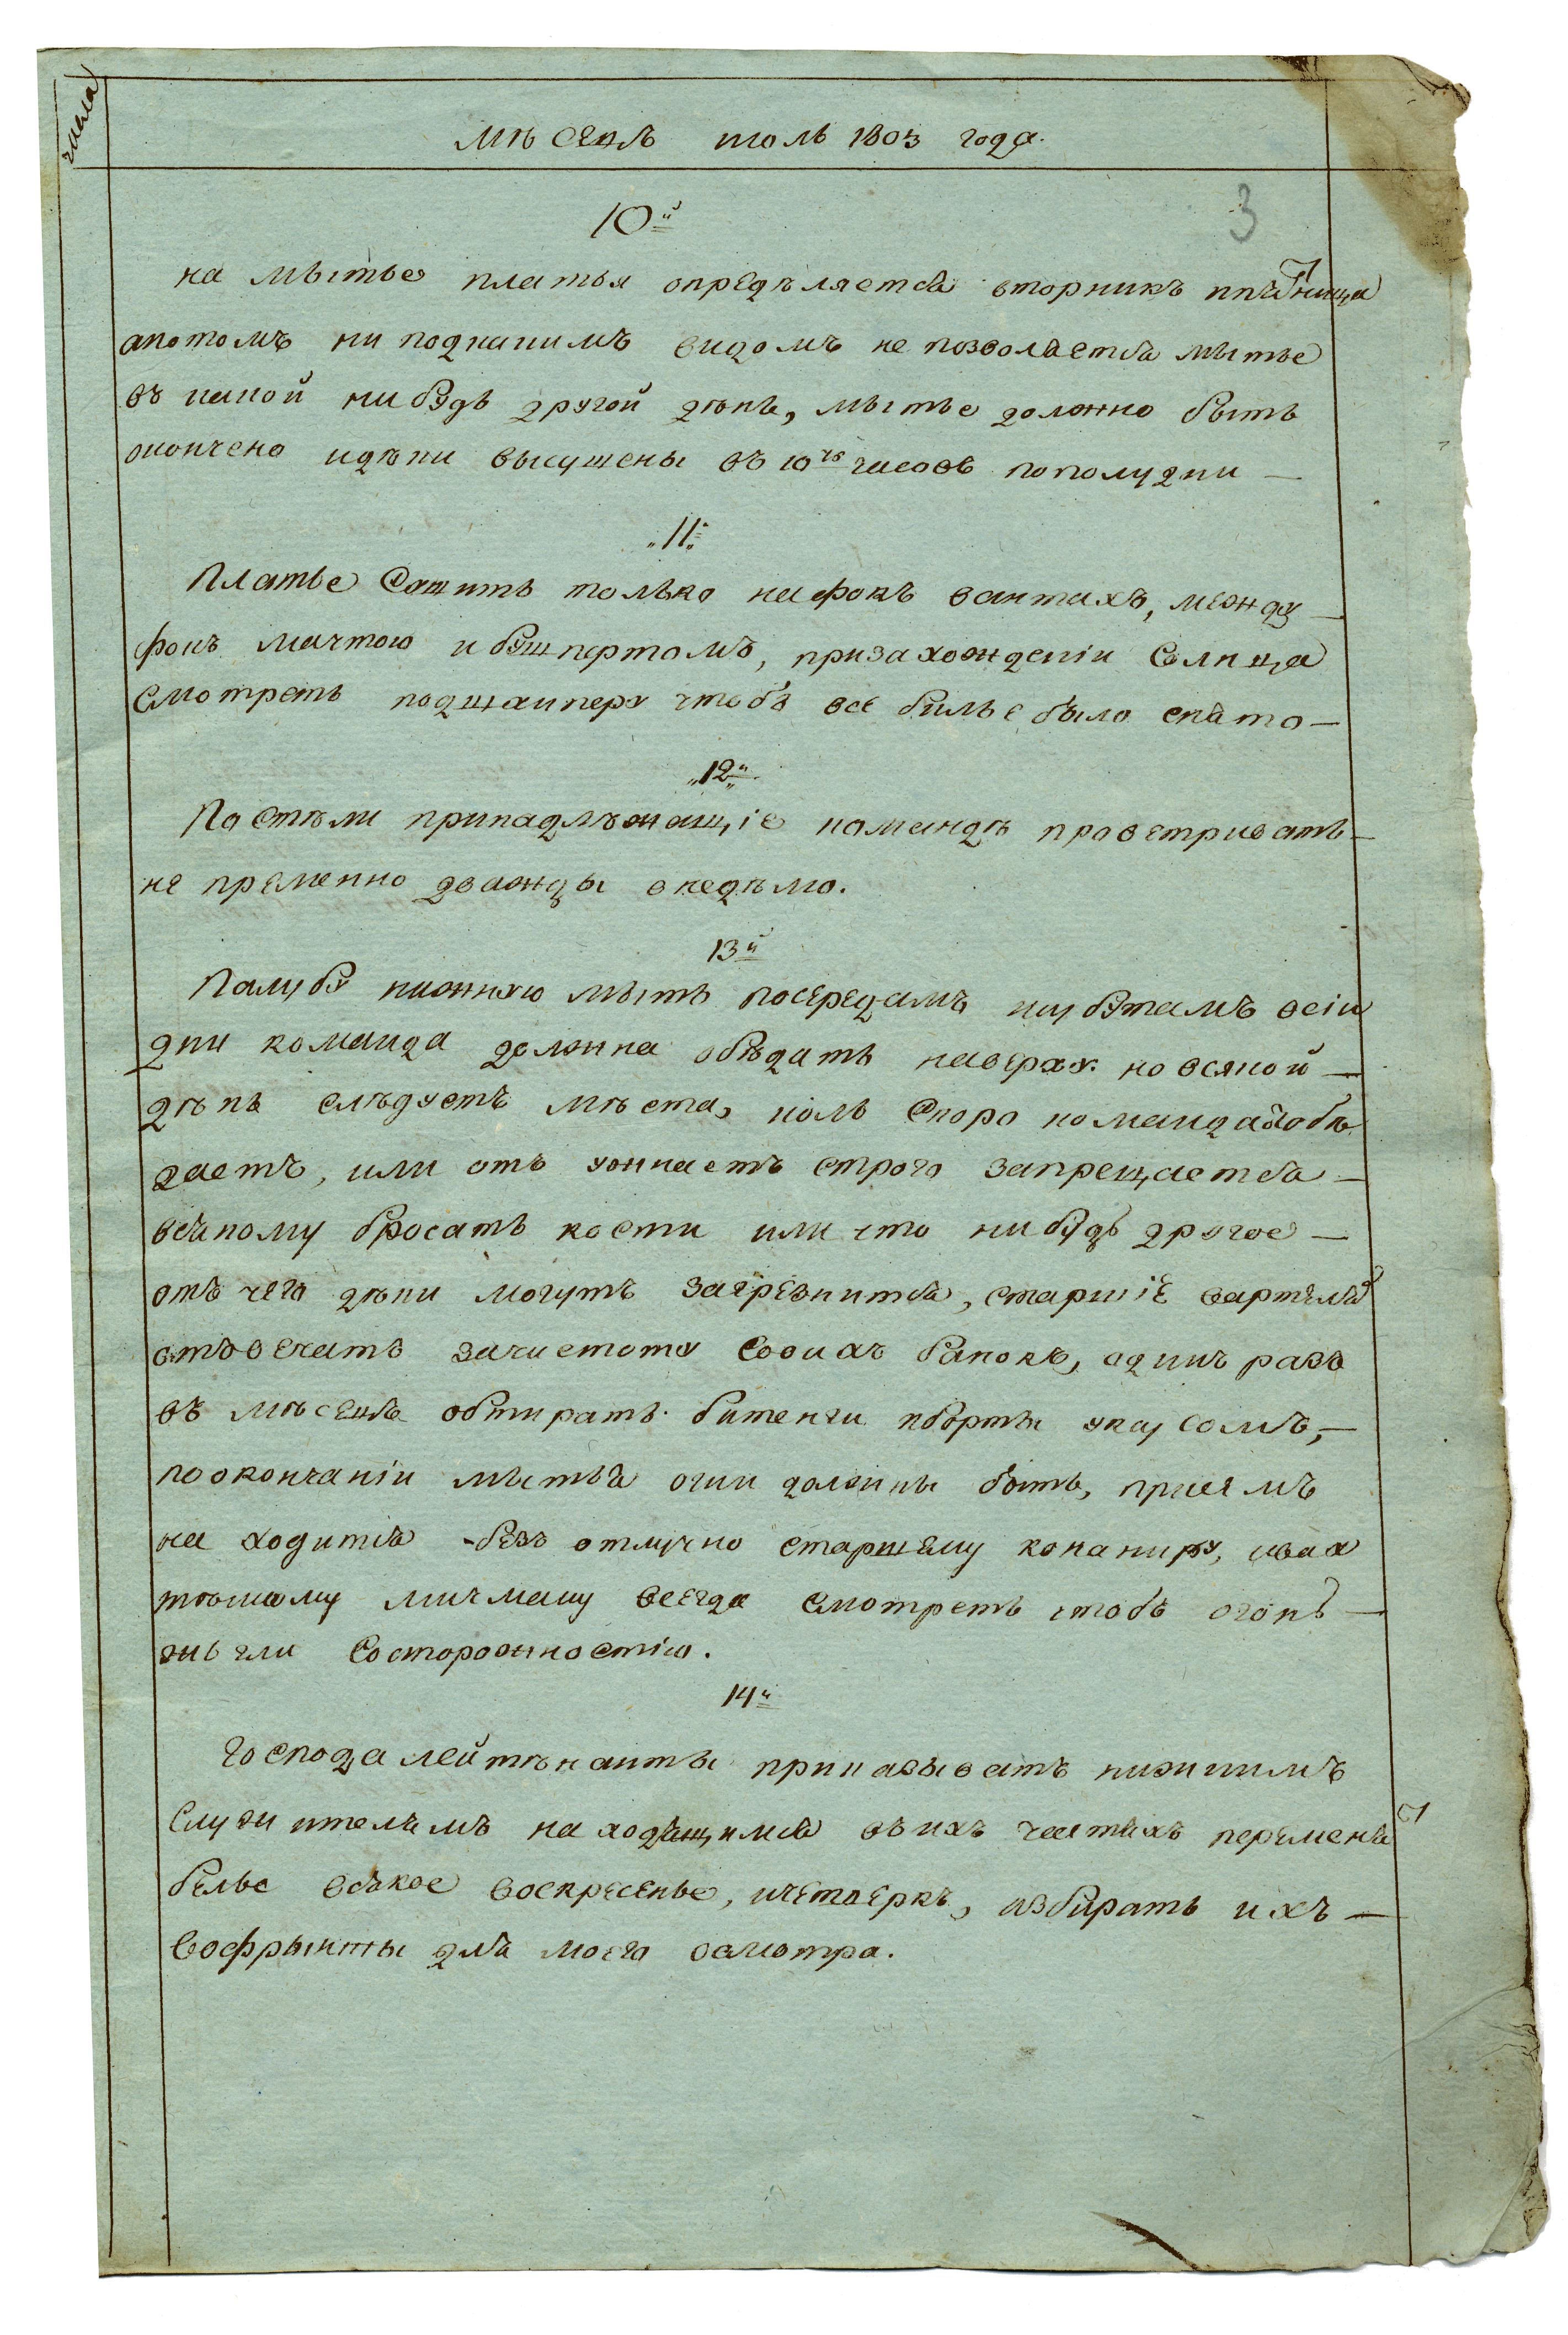 числа
мѣсецъ июль 1803 года.
3
10й
на мытье платья определяется вторникъ ипятница
апотомъ ни подкакимъ видомъ не позволяется мытье
въ какой нибудь другой дѣнь, мытье должно быть
окончено идѣки высушены въ 10ть часовъ пополудни —
„11„
Платье сашить только нафокъ вантахъ, между —
фокъ мачтою и бушпертомъ, призахождении солнца
смотреть подшхиперу чтобъ все билье было снято —
„12й„
Постѣли принадлѣжащіе командѣ проветривать —
не пременно дважды внедѣлю.
13й
Палубу нижнюю мыть посередамъ исуботамъ всіи
дни команда должна обѣдать наверху. но всякой —
дѣнь слѣдуетъ мѣста, коль скоро команда обѣ
даетъ, или отъ ужнаетъ строго запрещается —
всякому бросать кости или что нибудь другое —
отъ чего дѣки могутъ загрезнится, старшіе вартеля
отвечать зачистоту своихъ банокъ, одинъ разъ
въ мѣсецъ обтирать битенги иборты укусомъ, —
поокончаніи мытья огни должны быть, присемъ
на ходится безъ отлучно старшему конаниру, ивах
тѣнному мичману всегда смотреть чтобъ огонь —
жьгли состорожностію.
14й
Господа лейтѣнанты приказывать нижнимъ
служителямъ на ходящимся въихъ частяхъ переменя
белье всякое воскресенье, ичетверкъ, избирать ихъ —
вофрынты для моего осмотра.